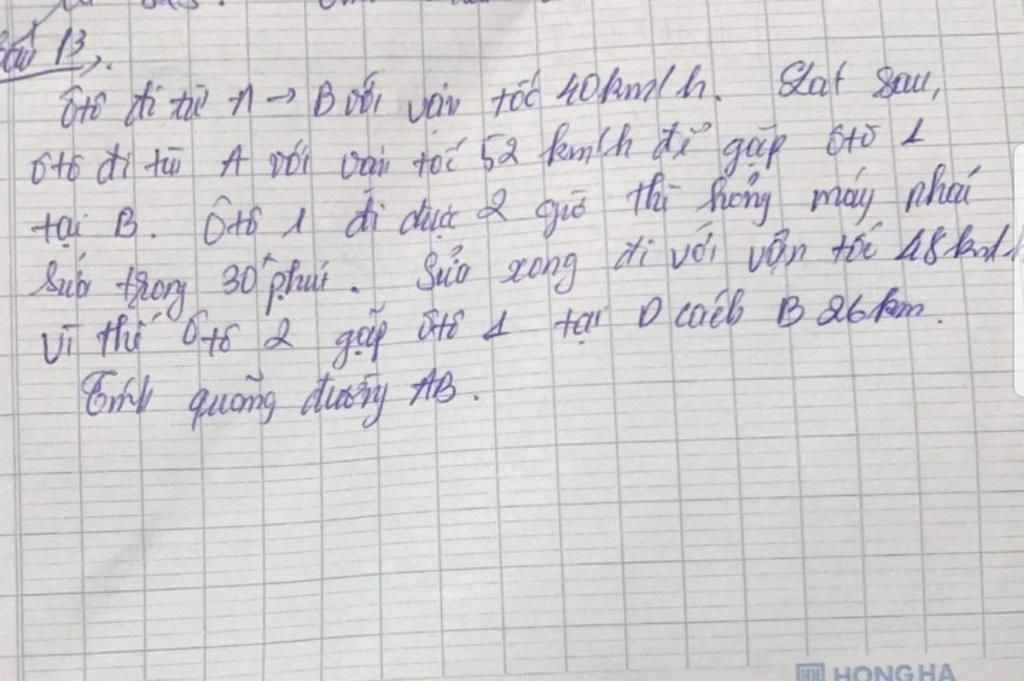 Bài 13,.
Ôtô đi từ A → B với vận tốc 40km/h. Lát sau,
ôtô đi từ A với vận tốc 52 km/h để gặp ôtô 1
tại B. Ôtô 1 đi được 2 giờ thì hỏng máy phải
sửa trong 30 phút. Sửa xong đi với vận tốc 48km/h
vì thế ôtô 2 gặp ôtô 1 tại D cách B 26km.
Tính quãng đường AB.
HH HONG HA